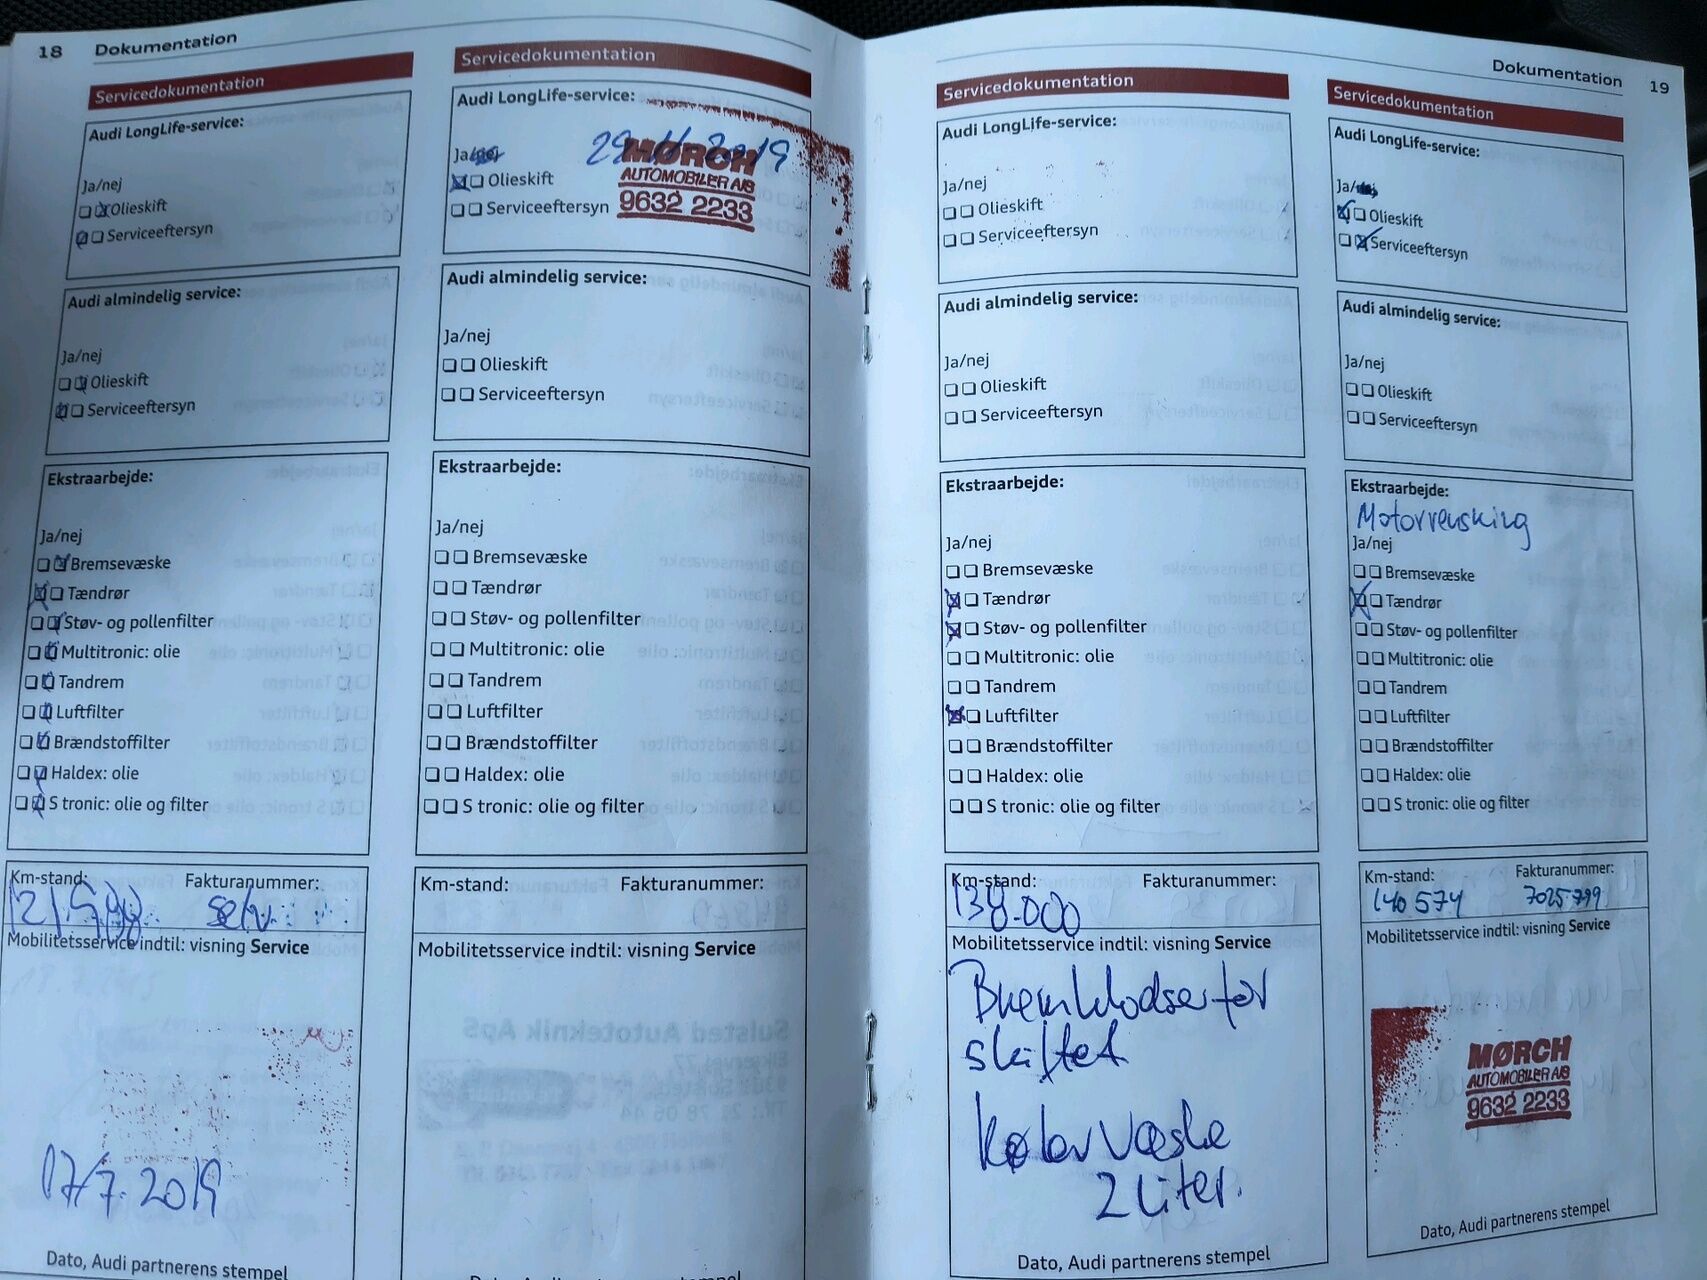 18 Dokumentation
Servicedokumentation
Audi LongLife-service:
Ja/nej
Olieskift
Serviceeftersyn
Audi almindelig service:
Ja/nej
Olieskift
Serviceeftersyn
Ekstraarbejde:
Ja/nej
Bremsevæske
Tændrør
Støv- og pollenfilter
Multitronic: olie
Tandrem
Luftfilter
Brændstoffilter
Haldex: olie
S tronic: olie og filter
Km-stand: Fakturanummer:
selv
Mobilitetsservice indtil: visning Service
17/7.2019
Dato, Audi partnerens stempel
Servicedokumentation
Audi LongLife-service:
29-11-2019
Ja/nej
MØRCH
AUTOMOBILER A/S
9632 2233
Olieskift
Serviceeftersyn
Audi almindelig service:
Ja/nej
Olieskift
Serviceeftersyn
Ekstraarbejde:
Ja/nej
Bremsevæske
Tændrør
Støv- og pollenfilter
Multitronic: olie
Tandrem
Luftfilter
Brændstoffilter
Haldex: olie
S tronic: olie og filter
Km-stand: Fakturanummer:
Mobilitetsservice indtil: visning Service
Dato, Audi partnerens stempel
Dokumentation 19
Servicedokumentation
Audi LongLife-service:
Ja/nej
Olieskift
Serviceeftersyn
Audi almindelig service:
Ja/nej
Olieskift
Serviceeftersyn
Ekstraarbejde:
Ja/nej
Bremsevæske
Tændrør
Støv- og pollenfilter
Multitronic: olie
Tandrem
Luftfilter
Brændstoffilter
Haldex: olie
S tronic: olie og filter
Km-stand: Fakturanummer:
138.000
Mobilitetsservice indtil: visning Service
Bremklodser for
skiftet
Køler Væske
2 liter.
Dato, Audi partnerens stempel
Servicedokumentation
Audi LongLife-service:
Ja/
Olieskift
Serviceeftersyn
Audi almindelig service:
Ja/nej
Olieskift
Serviceeftersyn
Ekstraarbejde:
Motorrensning
Ja/nej
Bremsevæske
Tændrør
Støv- og pollenfilter
Multitronic: olie
Tandrem
Luftfilter
Brændstoffilter
Haldex: olie
S tronic: olie og filter
Km-stand: Fakturanummer:
140 574 7025799
Mobilitetsservice indtil: visning Service
MØRCH
AUTOMOBILER A/S
9632 2233
Dato, Audi partnerens stempel